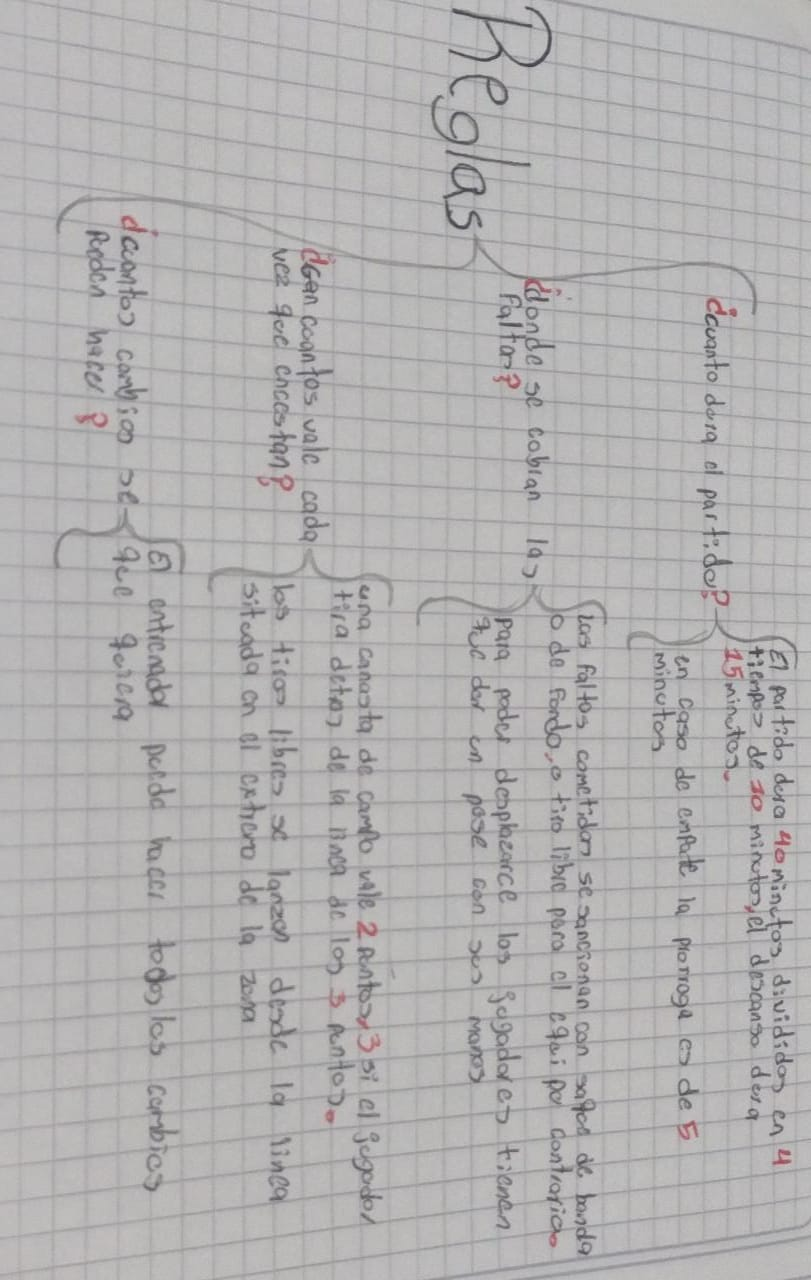 Reglas
¿cuanto dura el partido?
El partido dura 40 minutos divididos en 4
tiempos de 10 minutos, el descanso dura
15 minutos.
en caso de empate la prorroga es de 5
minutos
¿donde se cobran las
faltas?
las faltas cometidas se sancionan con saques de banda
o de fondo, o tiro libre para el equipo contrario.
para poder desplazarce los jugadores tienen
que dar un pase con sus manos
¿can cuantos vale cada
vez que encestan?
una canasta de campo vale 2 puntos, 3 si el jugador
tira detras de la linea de los 3 puntos.
los tiros libres se lanzan desde la linea
situada en el extremo de la zona
¿cuantos cambios se
pueden hacer?
El entrenador puede hacer todos los cambios
que quiera